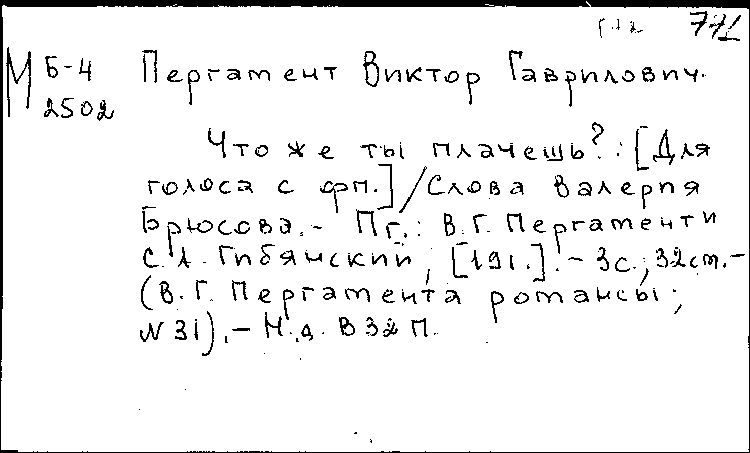 771
М Б-4 Пергамент Виктор Гаврилович.
2502
Что же ты плачешь?: [Для
голоса с фп.] / Слова Валерия
Брюсова. - Пг.: В.Г. Пергамент и
С.Л. Гибянский, [191.]. - 3с.; 32см. -
(В.Г. Пергамента романсы;
N 31). - Н.д. В 32 П.